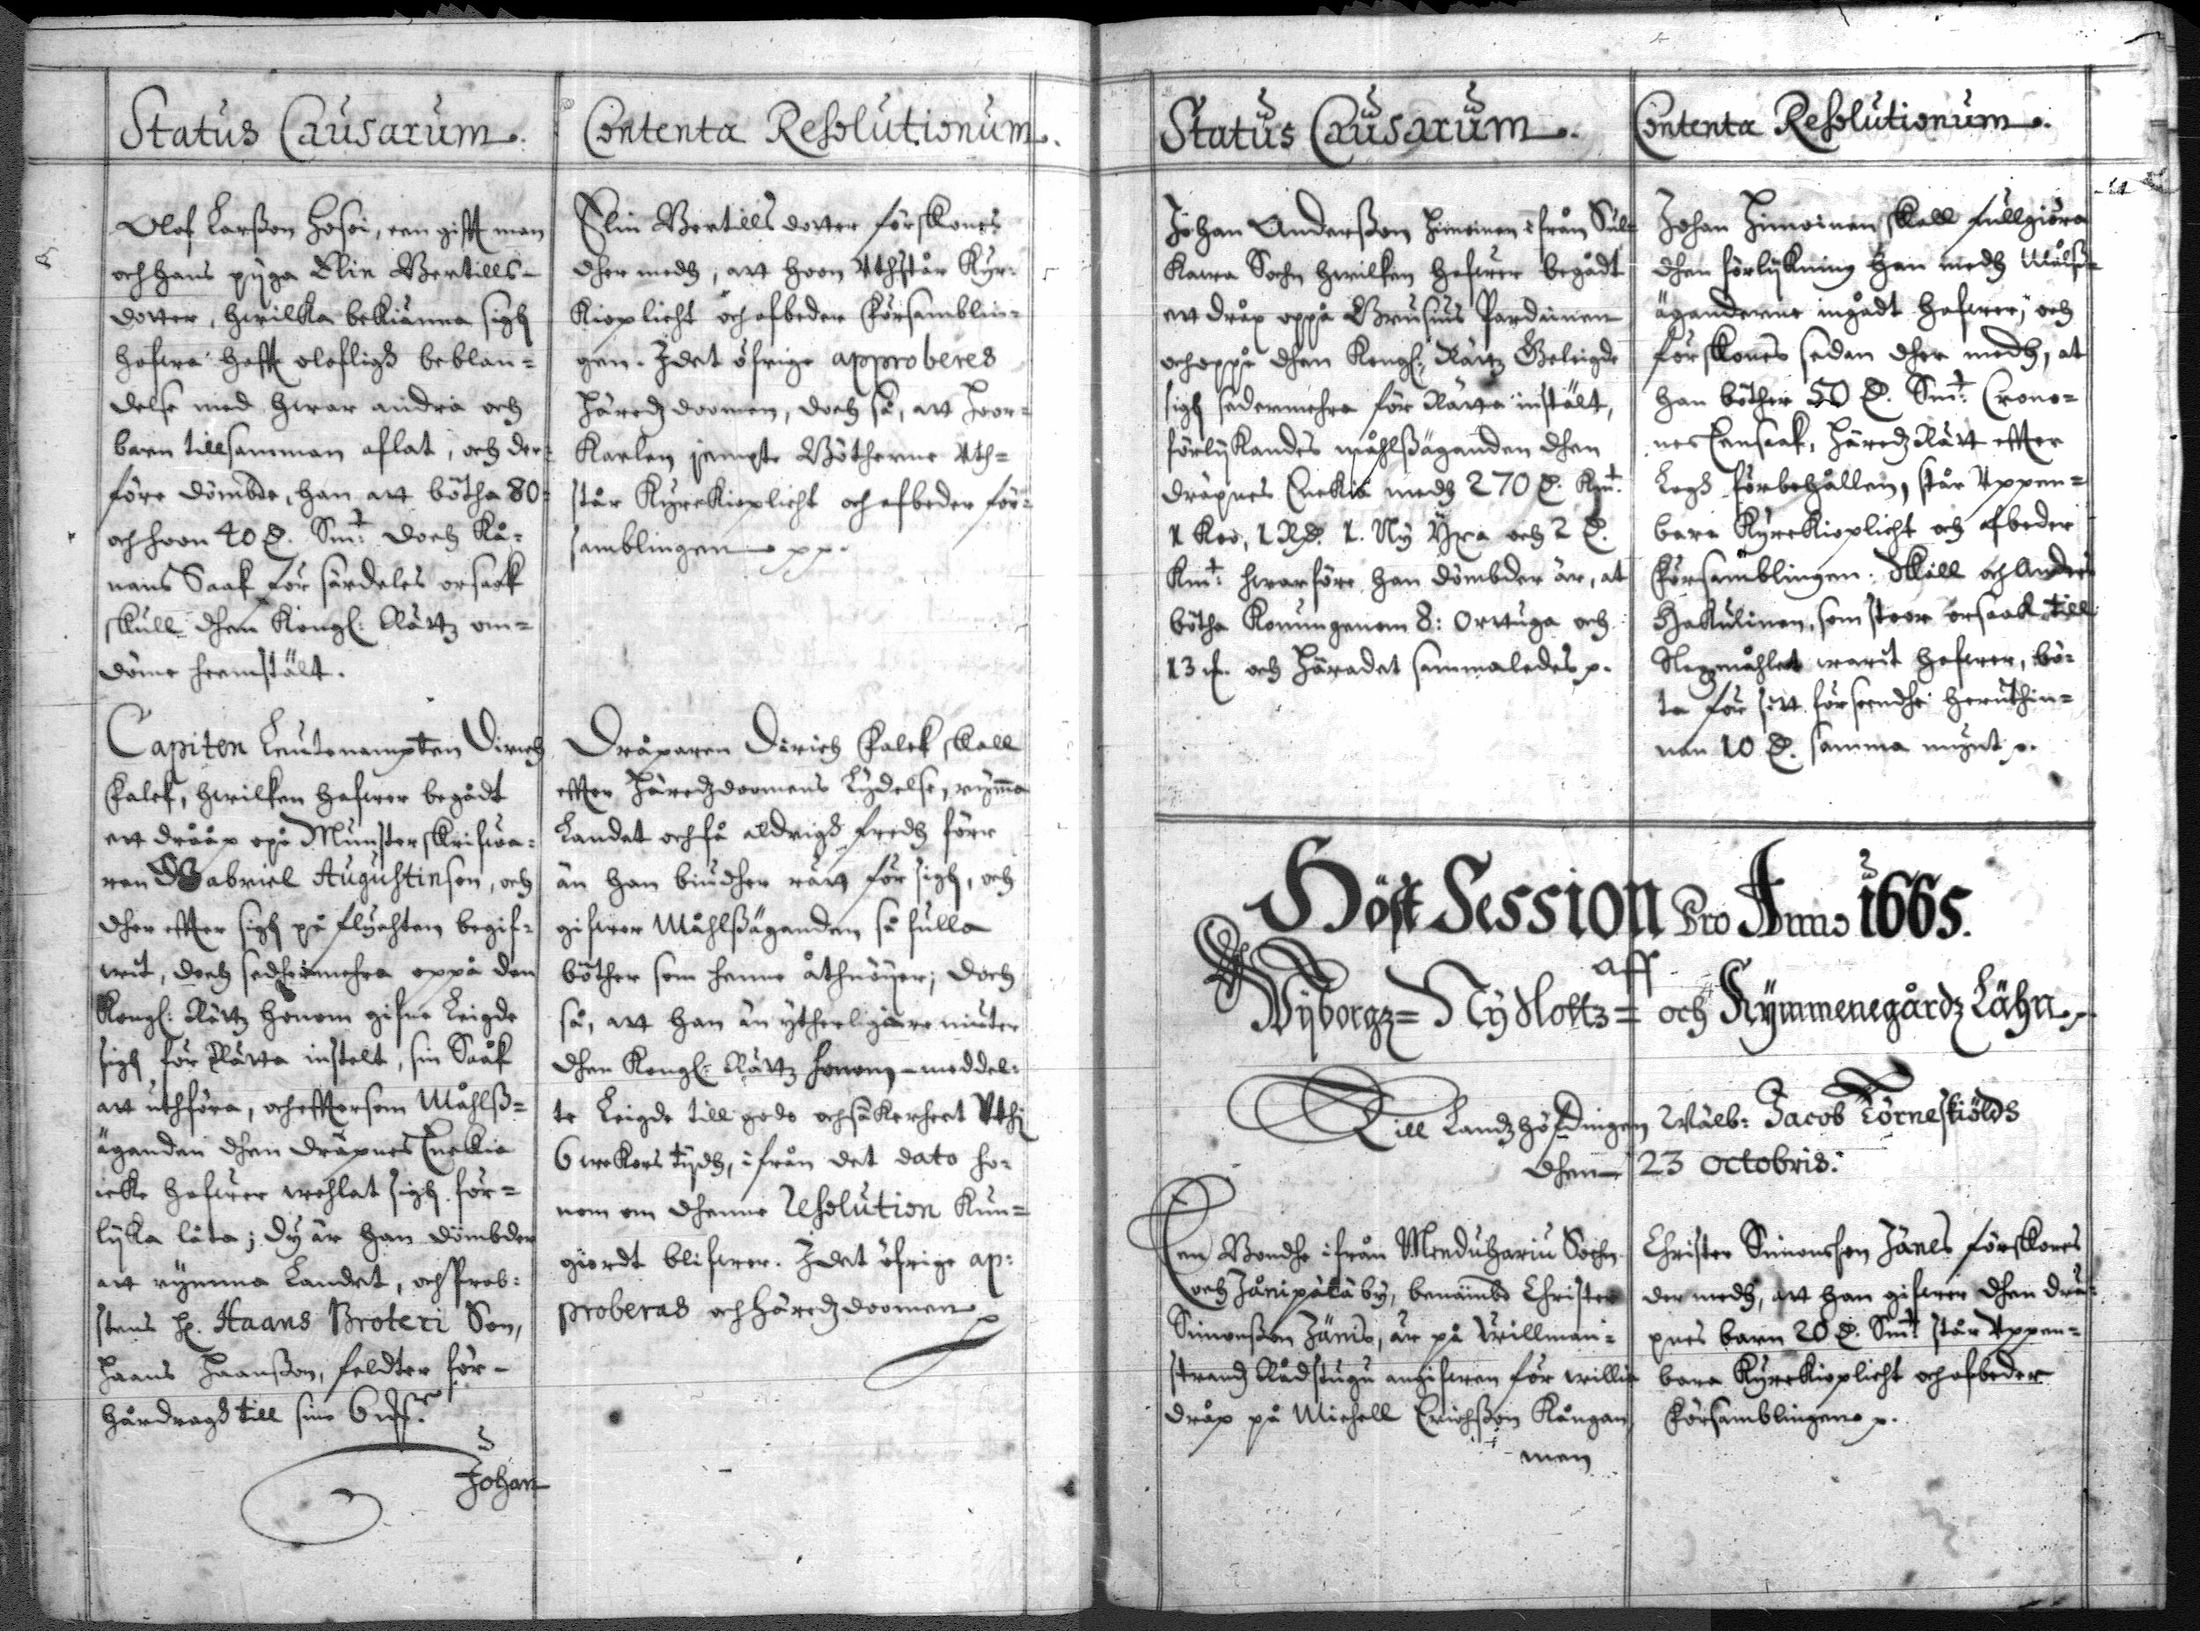 Status Causarum.
Olof Larßon Hosoi, een gifft man
och hans pijga Elin Bertills-
dotter, hwilka bekiänna sigh
hafwa hafft olofligh beblan=
delse med hwar andra och
barn tillsamman aflat, och der-
före dömbde, han att bötha 80
och hoon 40 D. Smt. doch Kå-
nans Saak för särdeles orsaak
skull dhen Kongl: Rättz om=
döme heemstält.
Capiten Leutenampten Dirich
Falck, hwilken hafwer begådt
ett drååp opå Munsterskrifwa=
ren Gabriel Augustinson, och
dher effter sigh på flychten begif-
wit, doch sedhermehra oppå den
Kongl: Rättz honom gifne Leigde
sigh för Rätta instelt, sin Saak
att uthföra, och effter som Målß=
äganden dhen dräpnes Enckia
icke hafwer wehlat sigh för=
lijka låta; dy är han dömbder
att rymma Landet, och Prob-
stens H. Haans Broteri Son,
Haans Haanßon, feldter för-
hårdragh till sine 6 ms.
Johan
Contenta Resolutionum.
Elin Bertills dotter förskones
dher medh, att hoon Uthstår Kyr-
kioplicht och afbeder Församblin-
gen. I det öfrige approberes
Häredz doomen, doch så, att Hoor-
Karlen jempte Bötherne Uth=
står Kyrckioplicht och afbeder för-
samblingen pp.
Dråparen Dirich Falck skall
effter Häredzdoomens Lydelse, rymma
Landet och få aldrigh fredh förr
än han biudher rätt för sigh, och
gifwer Måhlßäganden så fulla
böther som henne åthnöyer; doch
så, att han än ytherligare niuter
dhen Kongl: Rättz honom meddel-
te Leigde till godo och säkerheet Uthi
6 wekors tijdh, ifrån det dato ho-
nom om dhenne Resolution Kun=
giordt blifwer. I det öfrige ap-
proberas och häredz doomen p
Status Causarum.
Johan Anderßon Himoinen ifrån Sul-
kawa Sochn hwilken hafwer begådt
ett dråp oppå Brusius Pardanen
och oppå dhen Kongl: Rättz Geleigde
sigh sedermehra för Rätta instält,
förlijkandes måhlßäganden dhen
dräpnes Enckia medh 270 D. Kmt.
1 Koo, 1 Rd. 1. Ny Yxa och 2 D.
Kmt: hwarföre han dömbder är, at
bötha Konungenom 8: Örtuga och
13 m. och Häradet sammaledes p.
Contenta Resolutionum.
Johan Himoinen skall fullgiöra
dhen förlijkning han medh Målß-
äganderne ingådt hafwer, och
förskones sedan dher medh, at
han böther 50 D. Smt: Crono=
nes Ensaak, Häredz Rätt effter
Lagh förbehållen, står Uppen=
bara Kyrckioplicht och afbeder
Församblingen. Skall och Anders
Hakulinen, som stoor orsaak till
Slagzmåhlet warit hafwer, bö-
ta för sitt förseendhe heruthin=
nan 10 D. samma mynt p.
Höst Session Pro Anno 1665.
aff
Wÿborgz= Nÿslottz= och Kÿmmenegårdz Lähn.
Till Landzhöfdingen Wälb: Jacob Törneskiölds
dhen 23 Octobris.
Een Bondhe ifrån Menduhariu Sochn
och Jänipälä by, benämbd Christer
Simonßon Jänis, är på Willman-
strand Rådstugu angifwen för willia
dråp på Michell Erichßon Kångan,
men
Christer Simonsson Jänes förskones
der medh, att han gifwer dhen drä-
pnes barn 20 D. Smt. står Uppen=
bara Kyrckioplicht och afbeder
Församblingene p.